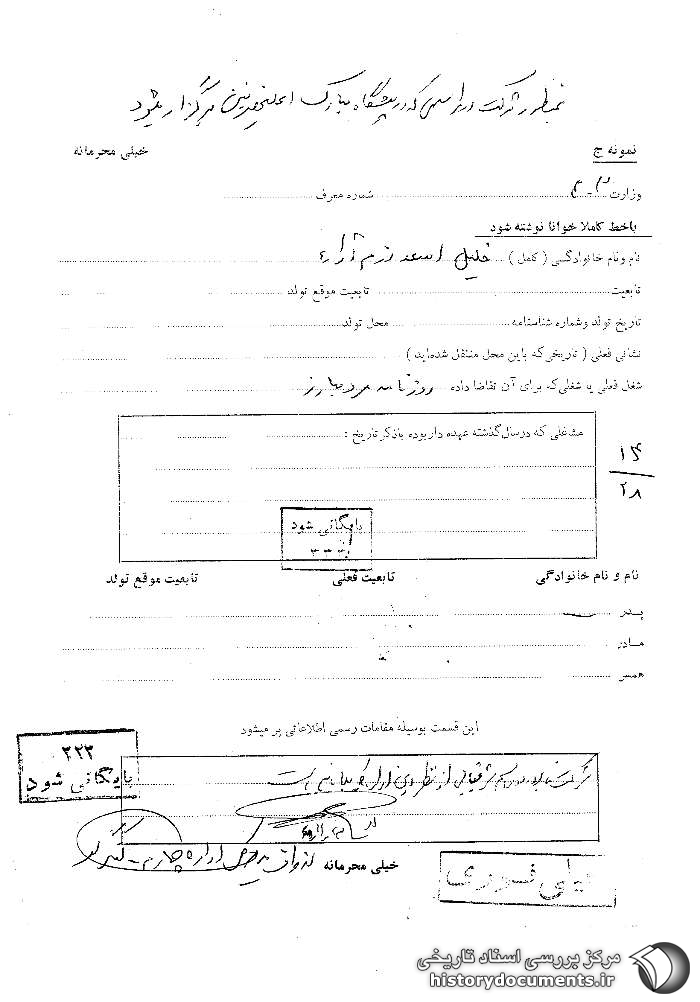 بمنظور شرکت در مراسمی که در پیشگاه مبارک اعلیحضرتین برگزار میشود
نمونه ج
خیلی محرمانه
وزارت
شماره معرف
باخط کاملا خوانا نوشته شود
نام ونام خانوادگی ( کامل ) خلیل اسعد رزم آراء
تابعیت
تابعیت موقع تولد
تاریخ تولد وشماره شناسنامه
محل تولد
نشانی فعلی ( تاریخی که باین محل منتقل شده‌اید )
شغل فعلی یا شغلی که برای آن تقاضا داده روزنامه مرد مبارز
مشاغلی که در سال گذشته عهده دار بوده باذکر تاریخ :
۱۴
۲۸
بایگانی شود
نام و نام خانوادگی
تابعیت فعلی
تابعیت موقع تولد
پدر
مادر
همسر
این قسمت بوسیله مقامات رسمی اطلاعاتی پر میشود
۲۲۳
بایگانی شود
شرکت نامبرده در مراسم شرفیابی از نظر این اداره کل بلامانع است
خیلی محرمانه
اداره چهارم
خیلی فوری
مرکز بررسی اسناد تاریخی
historydocuments.ir